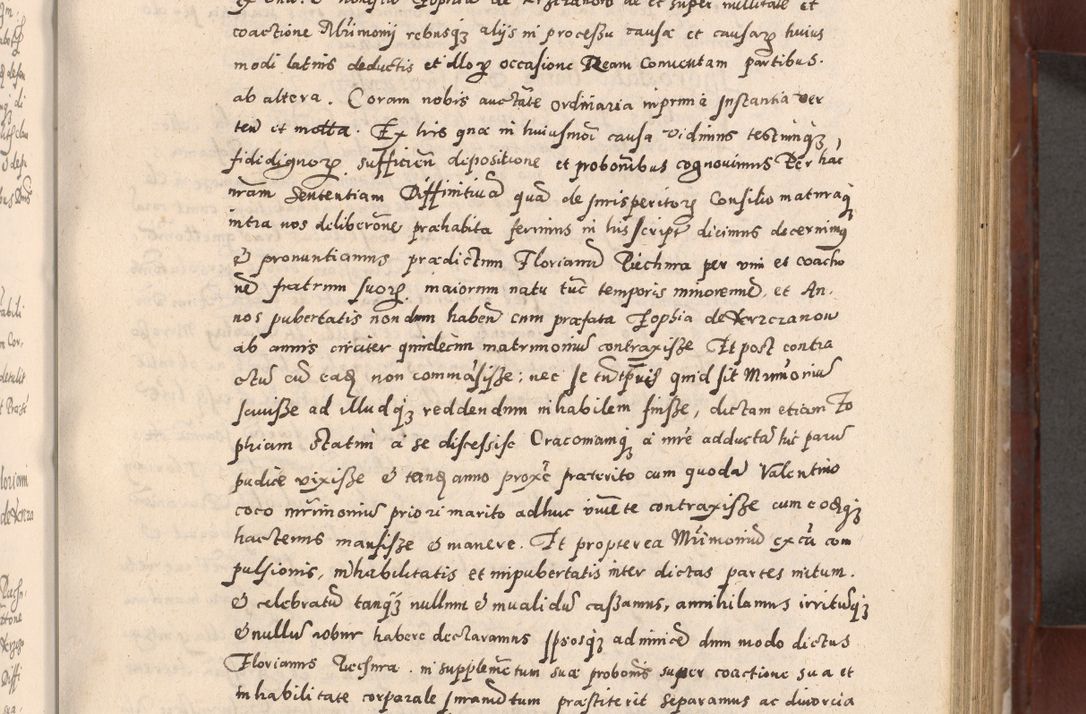 coactione Mrimonij rebusqз alijs in processu causæ et causarꝝ huius
modi latius deductis et illoꝝ occasione Ream Conventam partibus.
ab altera. Coram nobis auctate ordinaria in prima Instantia ver
ten et mota. Ex his quæ in huiusmoi causa vidimus testiumqз,
fidedignoꝝ sufficien depositione et probonibus cognovimus Per hac
nram Sententiam Diffinitiva qua de Jurisperitoꝝ Consilio maturaqз
intra nos deliberone præhabita ferimus in his scriptis dicimus decernimus
& pronuntiamus prædictum Florianu Piechura per vim et coactio
ne fratrum suoꝝ maiorum natu tuc temporis minorenne, et An.
nos pubertatis nondum haben cum præfata Sophia de Krzczanow
ab annis circiter quindecim matrimoniu contraxisse Et post contra
ctu cu eadem non commasisse; nec se tu quid sit Mrimoniu
scivisse ad illudqз reddendum inhabilem fuisse, dictam etiam So
phiam statim a se discessisse Cracoviamqз a mre adducta hic paru
pudice vixisse & tandem anno proxe præterito cum quoda Valentino
coco mrimoniu priori marito adhuc vivente contraxisse cum eodemqз
hactenus mansisse & manere. Et propterea Mrimoniu ex ca com
pulsionis, inhabilitatis et impubertatis inter dictas partes initum.
& celebratu tanqз nullum & invalidu cassamus, annihilamus irrituqз
& nullu robur habere declaramus Ipsosqз ad invice dum modo dictus
Florianus Piechura. in supplementum suæ probonis super coactione sua et
inhabilitate corporale Iuramentum præstiterit separamus ac divorcia